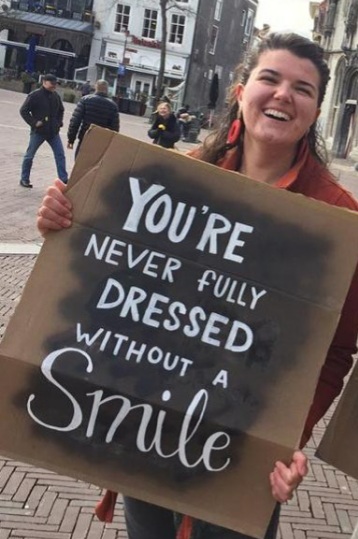 YOU'RE
NEVER fULLY
DRESSED
WITHOUT A
Smile